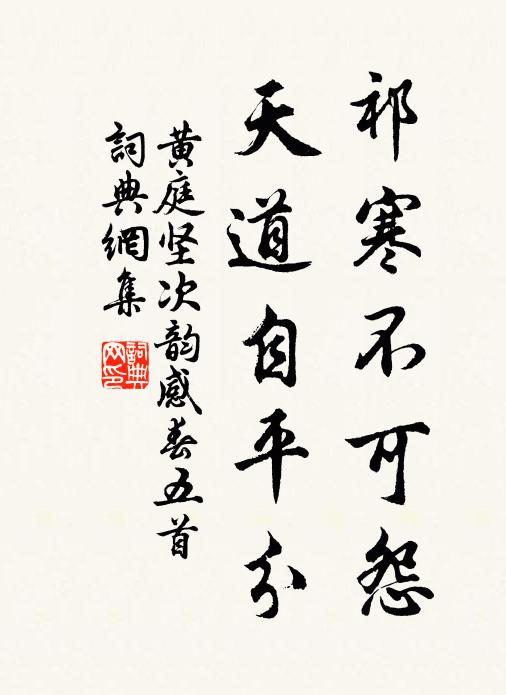 祁寒不可怨
天道自平分
黄庭坚次韵感春五首
詞典網集
詞典
网印